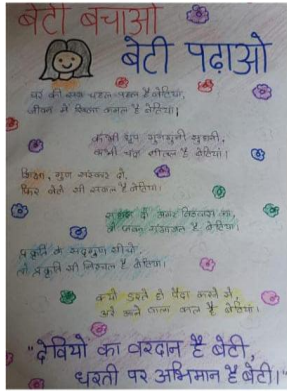 बेटी बचाओ
बेटी पढ़ाओ
घर की चहल पहल है बेटियां,
जीवन में खिला कमल है बेटियां।
कभी धूप गुनगुनी सुहानी,
कभी चंदा शीतल है बेटियां।
शिक्षा, गुण संस्कार दो,
फिर बेटों सी सबल है बेटियां।
सहारा दो अगर विश्वास का,
तो पावन गंगाजल है बेटियां।
प्रकृति के सद्गुण सींचो
तो प्रकृति सी निश्चल है बेटियां।
क्यों डरते हो पैदा करने से,
अरे आने वाला कल है बेटियां।
"देवियो का वरदान है बेटी,
धरती पर अभिमान है बेटी।"